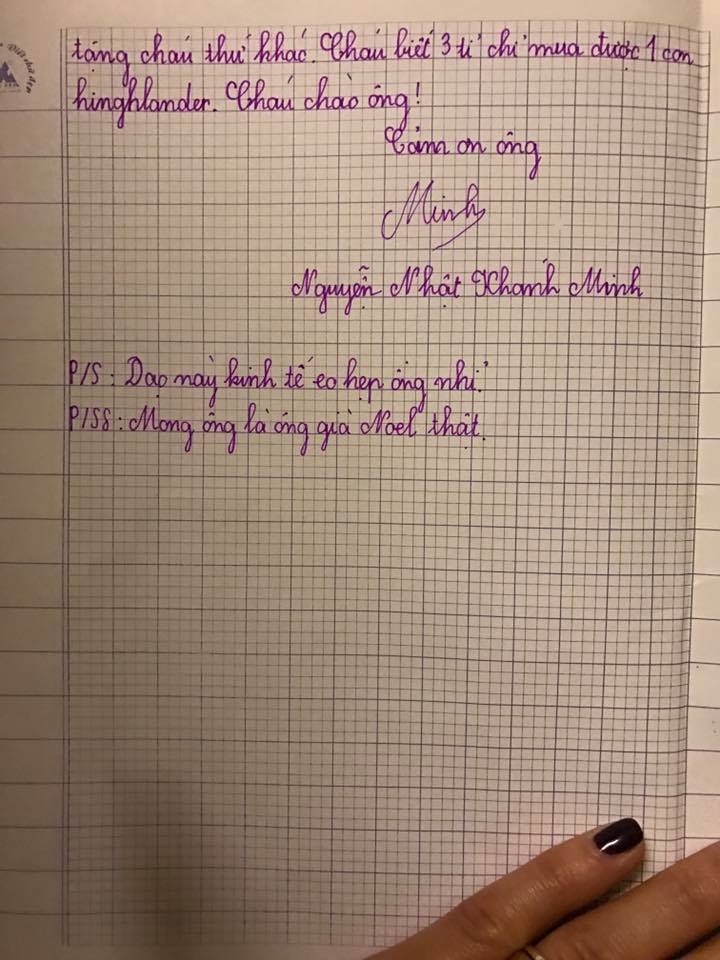 tặng cháu thứ khác. Cháu biết 3 tỉ chỉ mua được 1 con
hinghlander. Cháu chào ông!
Cảm ơn ông
Minh
Nguyễn Nhật Khánh Minh
P/S: Dạo này kinh tế eo hẹp ông nhỉ.
P/SS: Mong ông là ông già Noel thật.